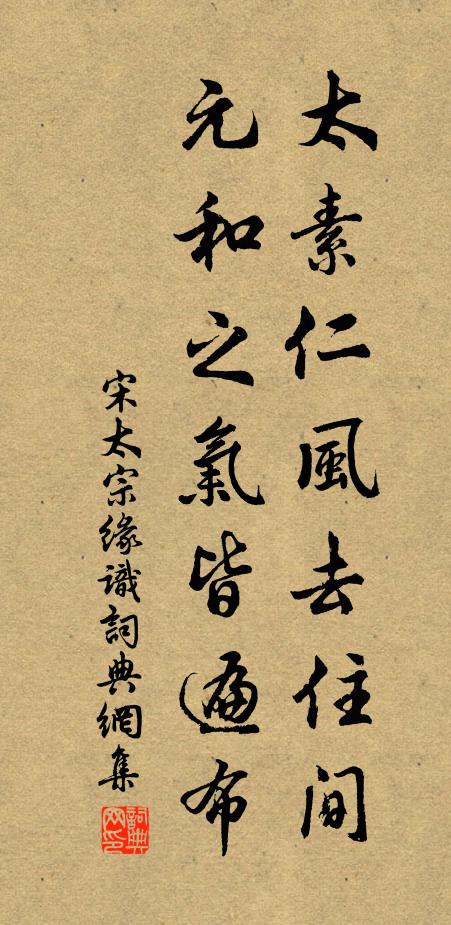 太素仁風去住間
元和之氣皆遍布
宋太宗緣識詞典網集
詞典网印